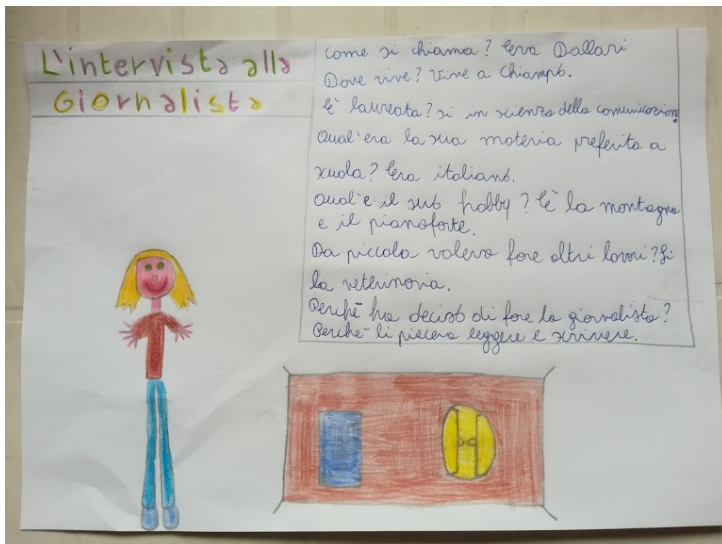 L'intervista alla
Giornalista
come si chiama? Eva Dallari
Dove vive? Vive a Chiampo.
è laureata? si in scienze della comunicazione
Qual'era la sua materia preferita a
scuola? Era italiano.
Qual'è il suo hobby? È la montagna
e il pianoforte.
Da piccola voleva fare altri lavori? Si
la veterinaria.
Perchè ha deciso di fare la giornalista?
Perchè li piaceva leggere e scrivere.